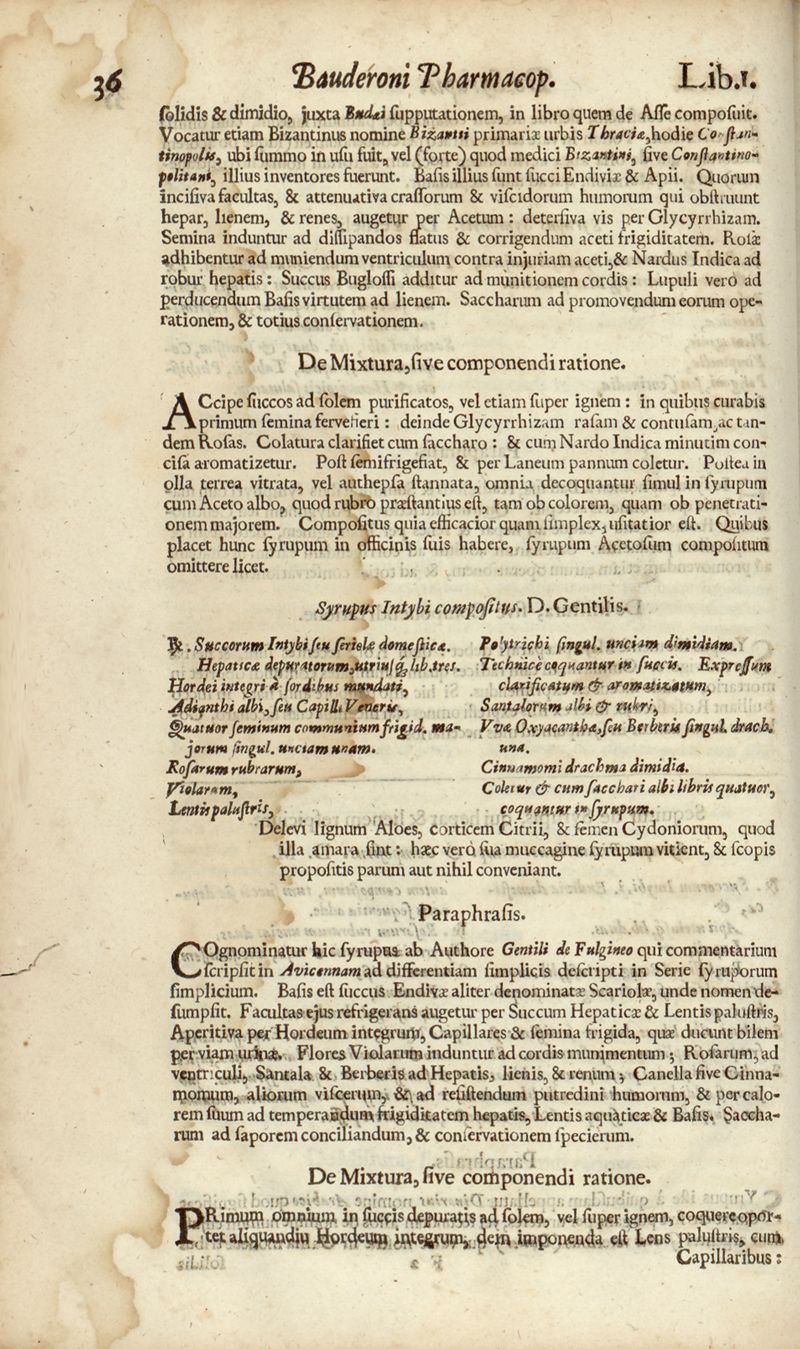 36 Bauderoni Pharmacop. Lib.1.
ſolidis & dimidio, juxta Budæi ſupputationem, in libro quem de Aſſe compoſuit.
Vocatur etiam Bizantinus nomine Bizantii primariæ urbis Thraciæ, hodie Conſtan-
tinopolis, ubi ſummo in uſu fuit, vel (forte) quod medici Bizantini, ſive Conſtantino-
politani, illius inventores fuerunt. Baſis illius ſunt ſucci Endiviæ & Apii. Quorum
inciſiva facultas, & attenuativa craſſorum & viſcidorum humorum qui obſtruunt
hepar, lienem, & renes, augetur per Acetum : deterſiva vis per Glycyrrhizam.
Semina induntur ad diſſipandos flatus & corrigendum aceti frigiditatem. Roſæ
adhibentur ad muniendum ventriculum contra injuriam aceti, & Nardus Indica ad
robur hepatis : Succus Bugloſſi additur ad munitionem cordis : Lupuli verò ad
perducendum Baſis virtutem ad lienem. Saccharum ad promovendum eorum ope-
rationem, & totius conſervationem.
De Mixtura, ſive componendi ratione.
ACcipe ſuccos ad ſolem purificatos, vel etiam ſuper ignem : in quibus curabis
primum ſemina fervefieri : deinde Glycyrrhizam raſam & contuſam, ac tan-
dem Roſas. Colatura clarifiet cum ſaccharo : & cum Nardo Indica minutim con-
ciſa aromatizetur. Poſt ſemifrigefiat, & per Laneum pannum coletur. Poſtea in
olla terrea vitrata, vel authepſa ſtannata, omnia decoquantur ſimul in ſyrupum
cum Aceto albo, quod rubro præſtantius eſt, tam ob colorem, quam ob penetrati-
onem majorem. Compoſitus quia efficacior quam ſimplex, uſitatior eſt. Quibus
placet hunc ſyrupum in officinis ſuis habere, ſyrupum Acetoſum compoſitum
omittere licet.
Syrupus Intybi compoſitus. D. Gentilis.
℞. Succorum Intybi ſeu ſeriolæ domeſticæ.
Hepaticæ depuratorum, utriuſq, lib. tres.
Hordei integri à ſordibus mundati,
Adianthi albi, ſeu Capilli Veneris,
Quatuor ſeminum communium frigid. ma-
jorum ſingul. unciam unam.
Roſarum rubrarum,
Violarum,
Lentis paluſtris,
Polytrichi ſingul. unciam dimidiam.
Technicè coquantur in ſuccis. Expreſſum
clarificatum & aromatizatum,
Santalorum albi & rubri,
Vvæ Oxyacanthæ, ſeu Berberis ſingul. drach.
una.
Cinnamomi drachma dimidia.
Coletur & cum ſacchari albi libris quatuor,
coquantur in ſyrupum.
Delevi lignum Aloes, corticem Citrii, & ſemen Cydoniorum, quod
illa amara ſint : hæc verò ſua muccagine ſyrupum vitient, & ſcopis
propoſitis parum aut nihil conveniant.
Paraphraſis.
COgnominatur hic ſyrupus ab Authore Gentili de Fulgineo qui commentarium
ſcripſit in Avicennam ad differentiam ſimplicis deſcripti in Serie ſyruporum
ſimplicium. Baſis eſt ſuccus Endivæ aliter denominatæ Scariolæ, unde nomen de-
ſumpſit. Facultas ejus refrigerans augetur per Succum Hepaticæ & Lentis paluſtris,
Aperitiva per Hordeum integrum, Capillares & ſemina frigida, quæ ducunt bilem
per viam urinæ. Flores Violarum induntur ad cordis munimentum ; Roſarum, ad
ventriculi, Santala & Berberis ad Hepatis, lienis, & renum ; Canella ſive Cinna-
momum, aliorum viſcerum, & ad reſiſtendum putredini humorum, & per calo-
rem ſuum ad temperandum frigiditatem hepatis, Lentis aquaticæ & Baſis. Saccha-
rum ad ſaporem conciliandum, & conſervationem ſpecierum.
De Mixtura, ſive componendi ratione.
PRimum omnium in ſuccis depuratis ad ſolem, vel ſuper ignem, coquere opor-
tet aliquandiu Hordeum integrum, dein imponenda eſt Lens paluſtris, cum
Capillaribus :